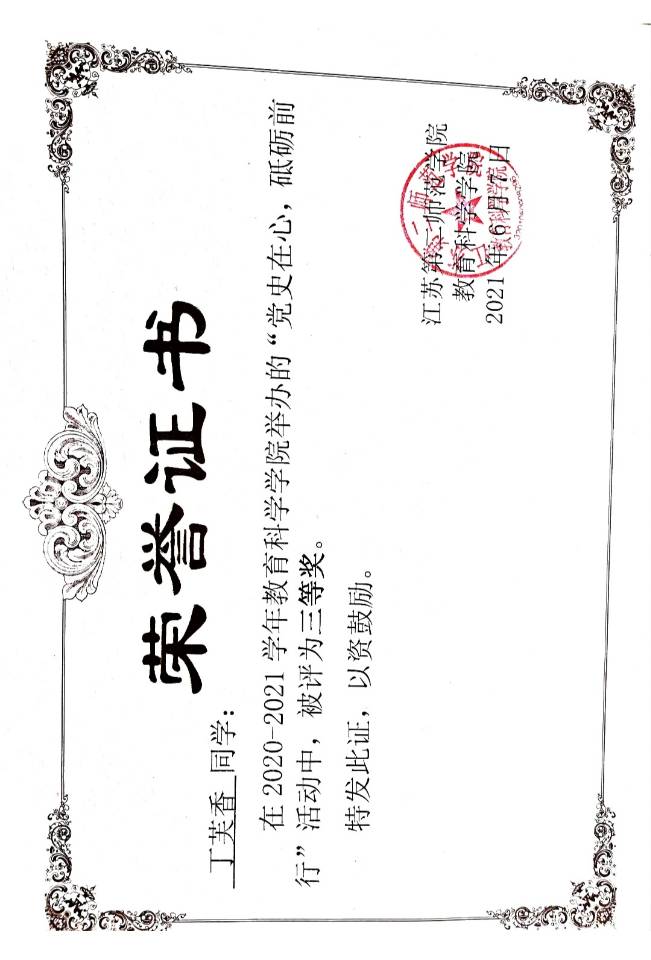 荣誉证书
丁芙香 同学：
在 2020-2021 学年教育科学学院举办的“党史在心，砥砺前
行”活动中，被评为三等奖。
特发此证，以资鼓励。
江苏第二师范学院
教育科学学院
2021 年 6 月 7 日